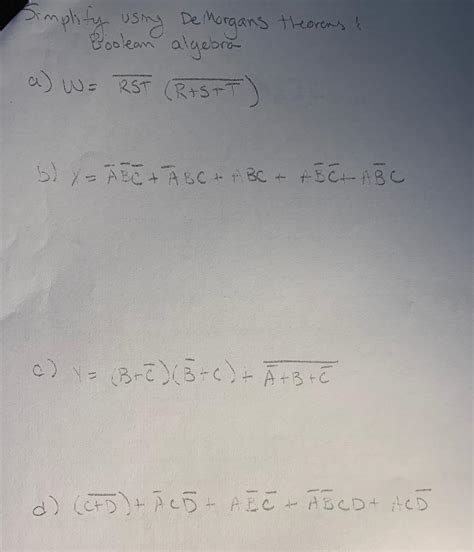 Simplify using DeMorgans theorems &
Boolean algebra
a) W = R̅S̅T̅ (R̅+̅S̅+̅T̅)
b) X = A̅B̅C̅ + A̅BC + ABC + AB̅C̅ + AB̅C
c) Y = (B+C̅)(B̅+C) + \overline{A̅+B+C̅}
d) (\overline{C+D}) + A̅CD̅ + AB̅C̅ + A̅B̅CD + ACD̅